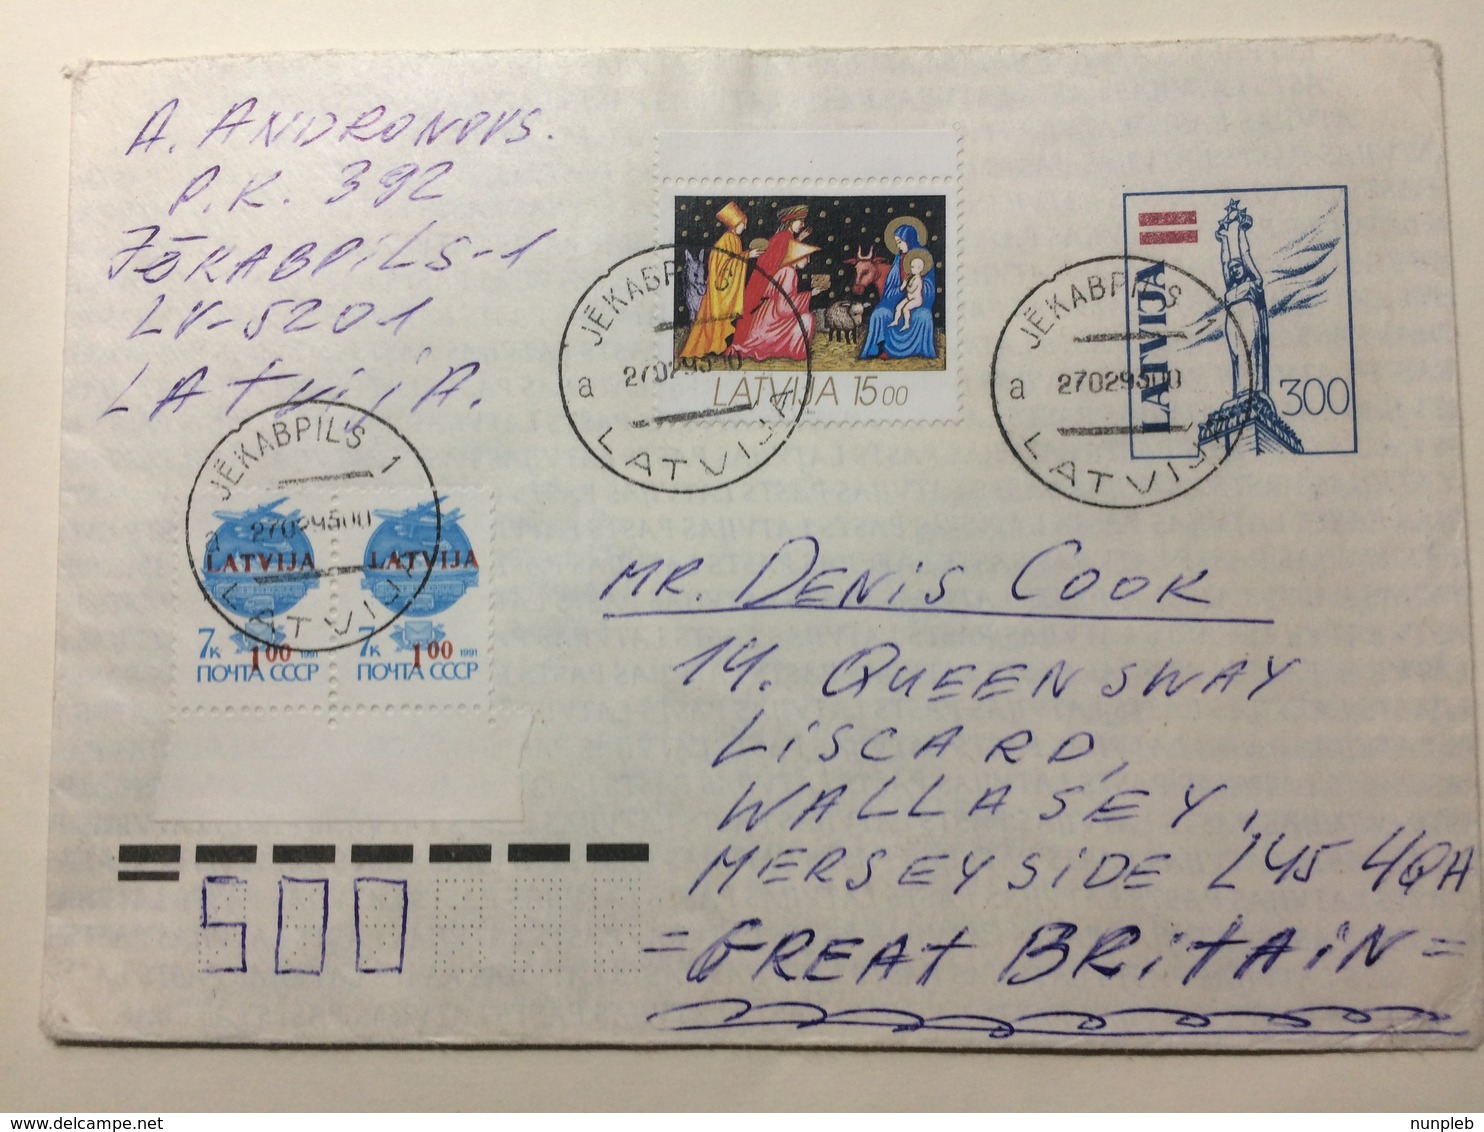 A. ANDRONOVS.
P.K. 392
JĒKABPILS-1
LV-5201
LATVIJA.
JĒKABPILS 1
a 270295 00
LATVIJA
LATVIJA 15 00
JĒKABPILS 1
a 270295 00
LATVIJA
LATVIJA
300
JĒKABPILS 1
a 270295 00
LATVIJA
LATVIJA LATVIJA
7к 1 00 1991 7к 1 00 1991
ПОЧТА СССР ПОЧТА СССР
MR. DENIS COOK
14. QUEENSWAY
LISCARD,
WALLASEY,
MERSEYSIDE L45 4QA
500
= GREAT BRITAIN =
www.delcampe.net
nunpleb